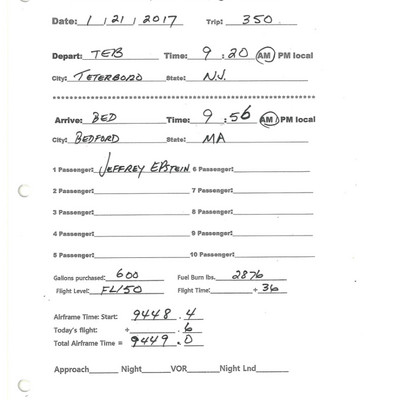 Date: 1 / 21 / 2017 Trip: 350
Depart: TEB Time: 9 : 20 AM PM local
City: TETERBORO State: NJ.
Arrive: BED Time: 9 : 56 AM PM local
City: BEDFORD State: MA
1 Passenger: JEFFREY EPSTEIN 6 Passenger:
2 Passenger: 7 Passenger:
3 Passenger: 8 Passenger:
4 Passenger: 9 Passenger:
5 Passenger: 10 Passenger:
Gallons purchased: 600 Fuel Burn lbs. 2876
Flight Level: FL150 Flight Time: ÷ 36
Airframe Time: Start: 9448 . 4
Today's flight: + . 6
Total Airframe Time = 9449 . 0
Approach Night VOR Night Lnd